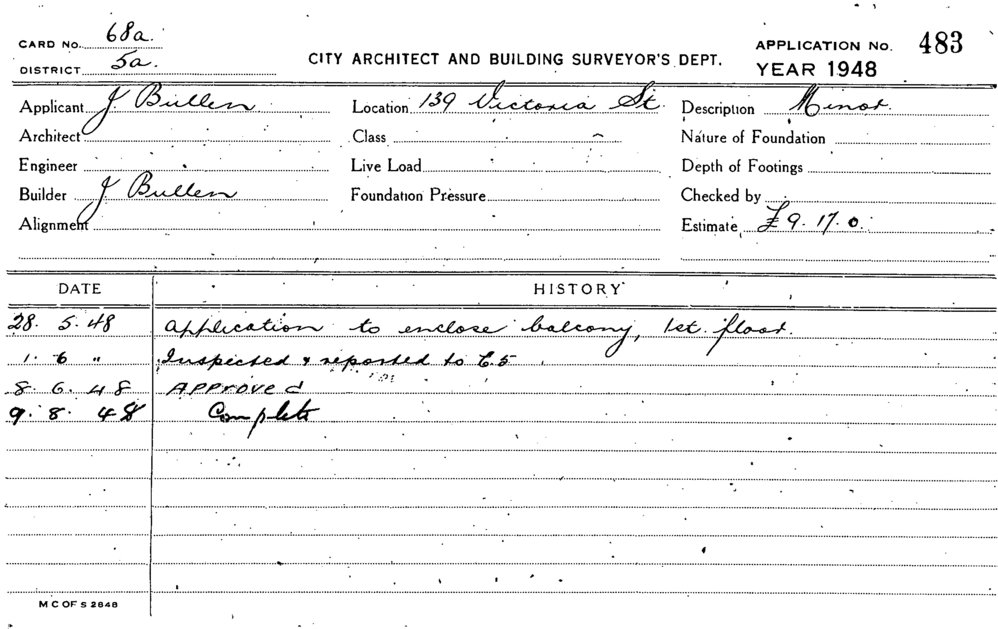 CARD No. 68a.
DISTRICT 5a.
CITY ARCHITECT AND BUILDING SURVEYOR'S DEPT.
APPLICATION No. 483
YEAR 1948
Applicant J Bullen Location 139 Victoria St. Description Minor.
Architect Class Nature of Foundation
Engineer Live Load Depth of Footings
Builder J Bullen Foundation Pressure Checked by
Alignment Estimate £9.17.0.
DATE HISTORY
28. 5. 48 Application to enclose balcony, 1st. floor.
1. 6 " Inspected & reported to C.S
8. 6. 48 Approved
9. 8. 48 Complete
M C OF S 2848